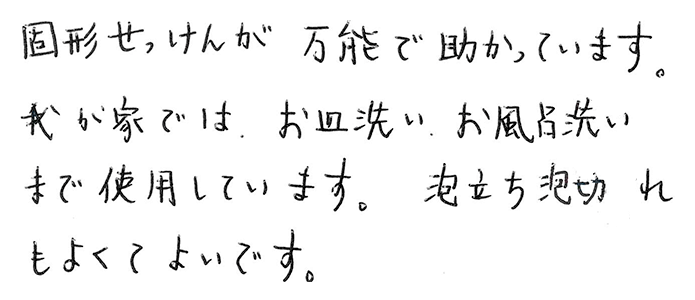 固形せっけんが 万能で助かっています。
我が家では、お皿洗い、お風呂洗い
まで使用しています。 泡立ち泡切れ
もよくてよいです。